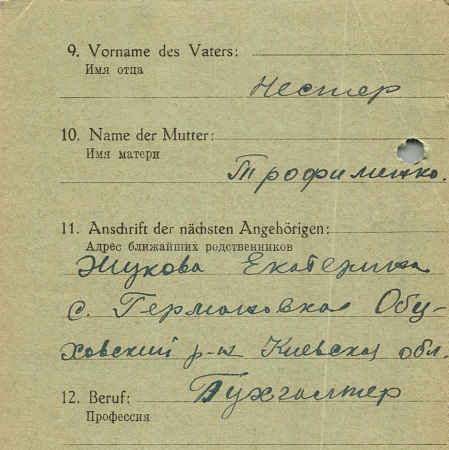 9. Vorname des Vaters:
Имя отца
Нестер
10. Name der Mutter:
Имя матери
Трофименко.
11. Anschrift der nächsten Angehörigen:
Адрес ближайших родственников
Жукова Екатерина
с. Германовка Обу-
ховский р-н Киевская обл.
12. Beruf: Бухгалтер
Профессия